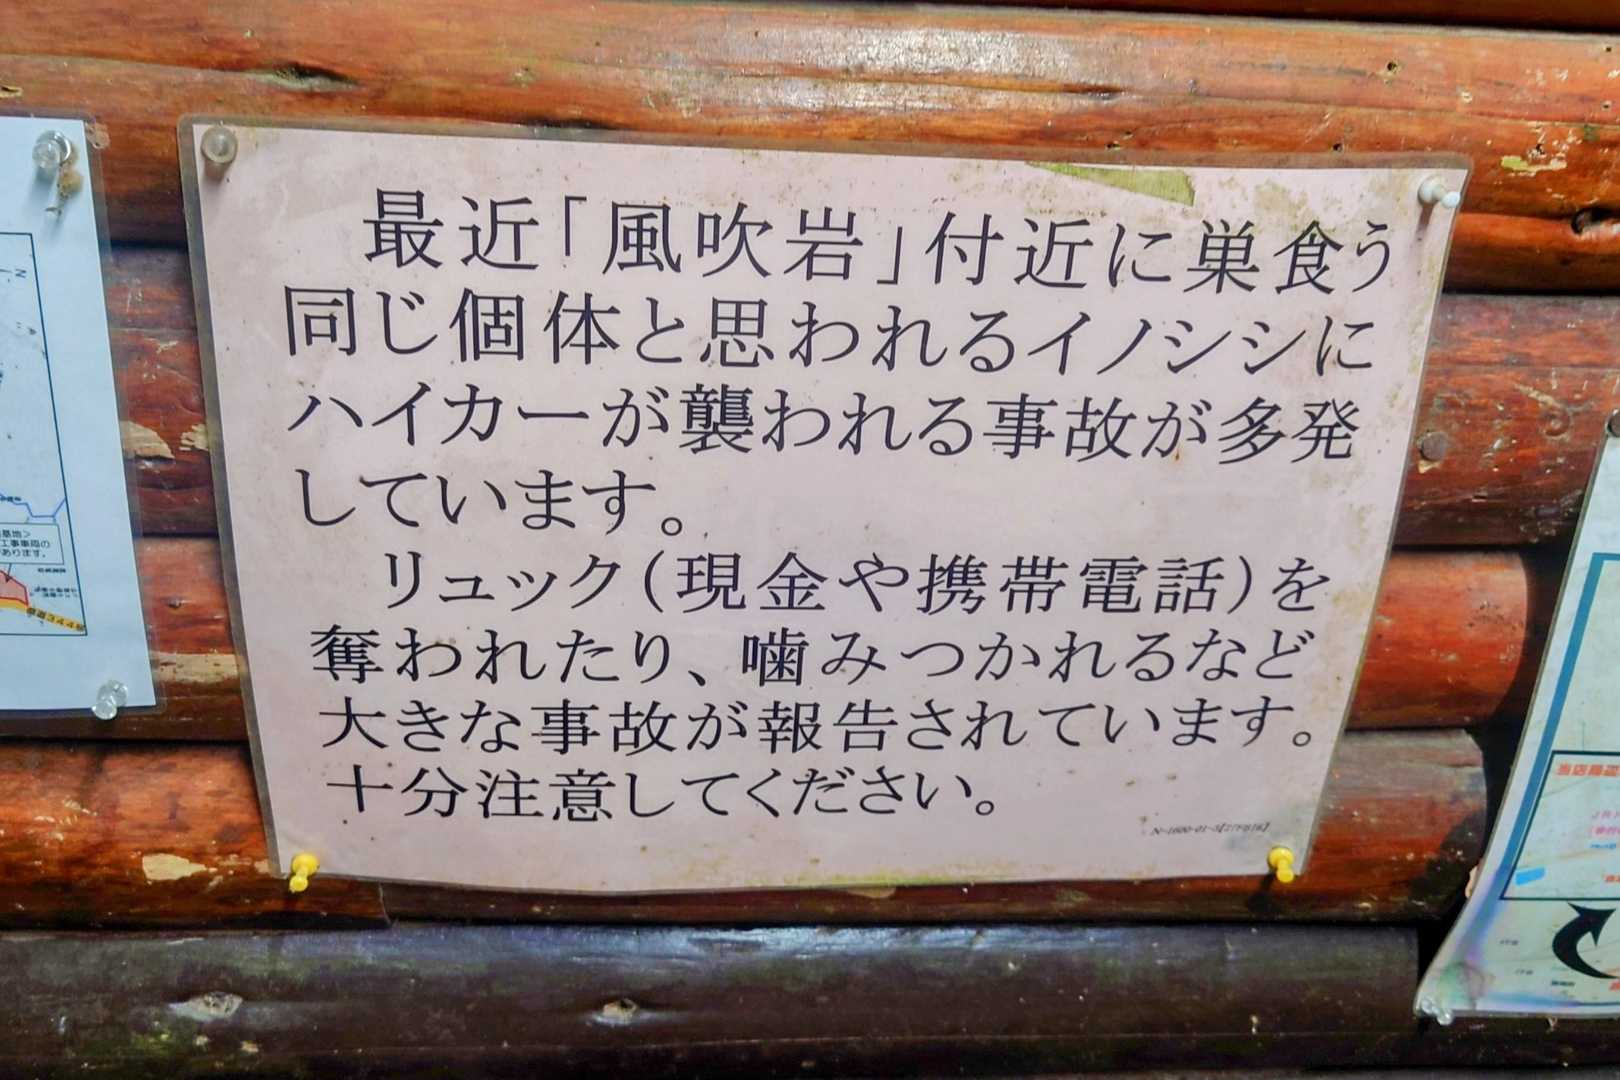 最近「風吹岩」付近に巣食う
同じ個体と思われるイノシシに
ハイカーが襲われる事故が多発
しています。
リュック(現金や携帯電話)を
奪われたり、噛みつかれるなど
大きな事故が報告されています。
十分注意してください。
基地>
工事車両の
あります。